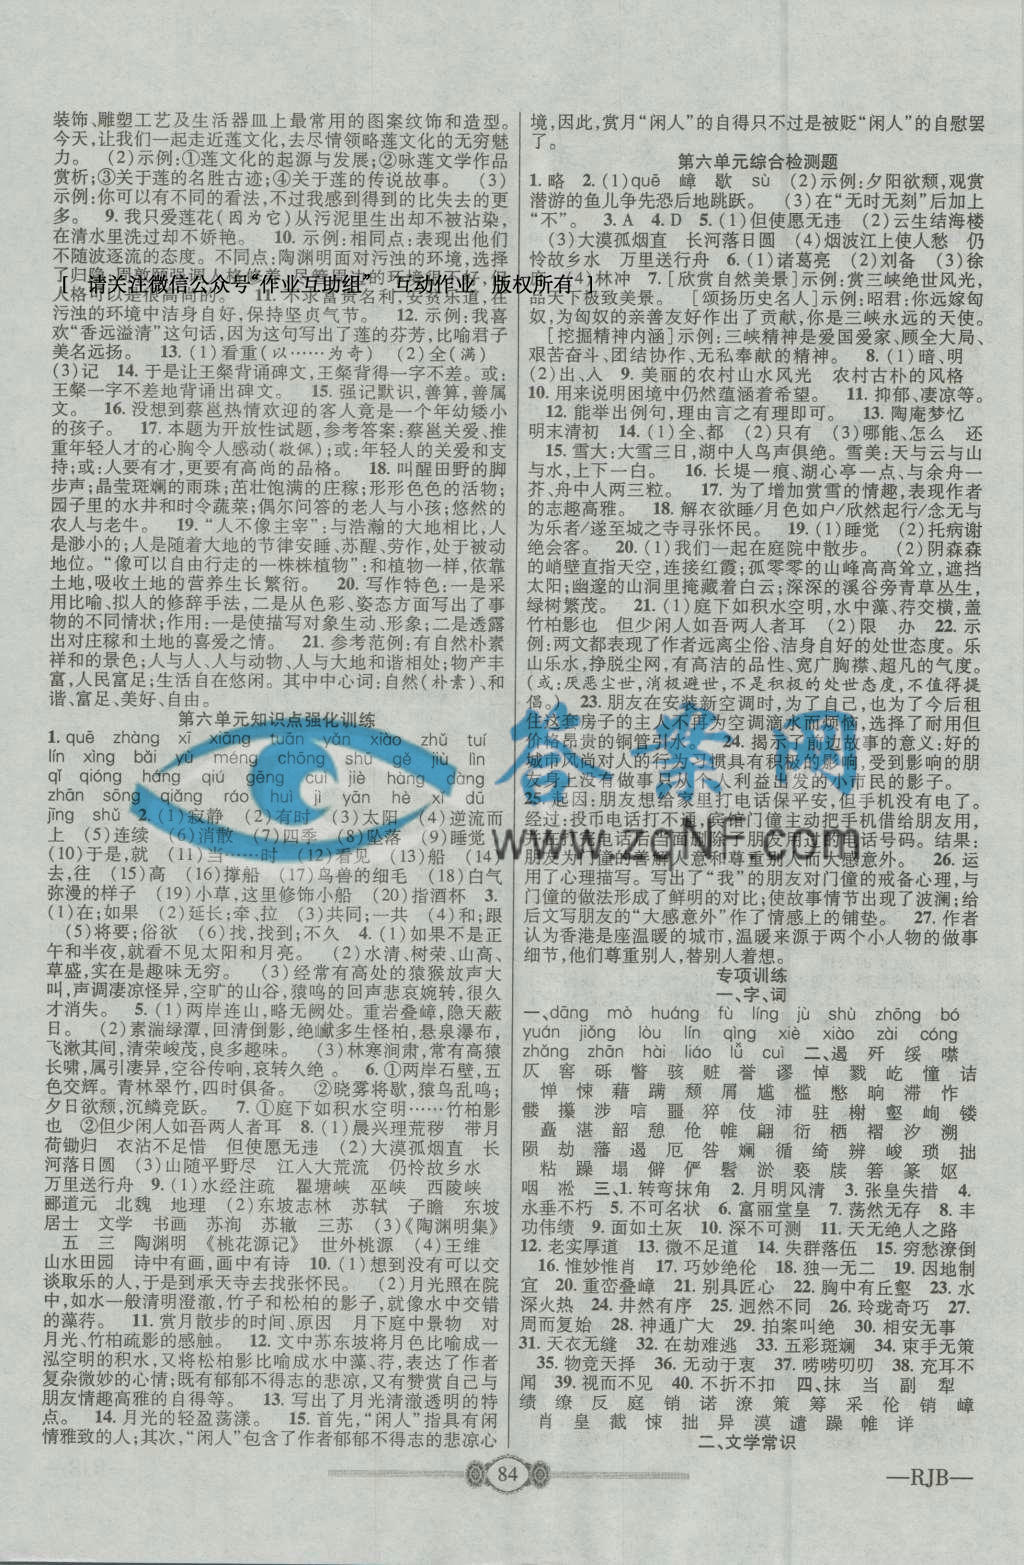 装饰、雕塑工艺及生活器皿上最常用的图案纹饰和造型。
今天,让我们一起走近莲文化,去尽情领略莲文化的无穷魅
力。 (2)示例:①莲文化的起源与发展;②咏莲文学作品
赏析;③关于莲的名胜古迹;④关于莲的传说故事。 (3)
示例:你可以有不同的看法,不过我感到得到的比失去的更
多。 9. 我只爱莲花(因为它)从污泥里生出却不被沾染,
在清水里洗过却不妖艳。 10. 示例:相同点:表现出他们
不随波逐流的态度。不同点:陶渊明面对污浊的环境,选择
[ 请关注微信公众号“作业互助组” 互动作业 版权所有 ]
人格可以是很高的。 11. 不求富贵名利,安贫乐道,在
污浊的环境中洁身自好,保持坚贞气节。 12. 示例:我喜
欢“香远溢清”这句话,因为这句写出了莲的芬芳,比喻君子
美名远扬。 13. (1)看重(以……为奇) (2)全(满)
(3)记 14. 于是让王粲背诵碑文,王粲背得一字不差。或:
王粲一字不差地背诵出碑文。 15. 强记默识,善算,善属
文。 16. 没想到蔡邕热情欢迎的客人竟是一个年幼矮小
的孩子。 17. 本题为开放性试题,参考答案:蔡邕关爱、推
重年轻人才的心胸令人感动(敬佩);或:年轻人的关爱和支
持;或:人要有才能,更要有高尚的品格。 18. 叫醒田野的脚
步声;晶莹斑斓的雨珠;茁壮饱满的庄稼;形形色色的活物;
园子里的水井和时令蔬菜;偶尔问答的老人与小孩;悠然的
农人与老牛。 19. “人不像主宰”:与浩瀚的大地相比,人
是渺小的;人是随着大地的节律安睡、苏醒、劳作,处于被动
地位。“像可以自由行走的一株株植物”:和植物一样,依靠
土地,吸收土地的营养生长繁衍。 20. 写作特色:一是采
用比喻、拟人的修辞手法,二是从色彩、姿态方面写出了事
物的不同情状;作用:一是使描写对象生动、形象;二是透露
出对庄稼和土地的喜爱之情。 21. 参考范例:有自然朴素
祥和的景色;人与人、人与动物、人与大地和谐相处;物产丰
富,人民富足;生活自在悠闲。其中中心词:自然(朴素)、和
谐、富足、美好、自由。
第六单元知识点强化训练
1. quē zhàng xī xiāng tuān yǎn xiào zhǔ tuí
lín xìng bǎi yù méng chōng shù gě jiù lìn
qǐ qióng háng qiú gēng cuì jiè hàng dàng
zhān sōng qiáng ráo huì jì yān hè xì dū
jīng shǔ 2. (1)寂静 (2)有时 (3)太阳 (4)逆流而
上 (5)连续 (6)消散 (7)四季 (8)坠落 (9)睡觉
(10)于是,就 (11)当……时 (12)看见 (13)船 (14)
去,往 (15)高 (16)撑船 (17)鸟兽的细毛 (18)白气
弥漫的样子 (19)小草,这里修饰小船 (20)指酒杯 3.
(1)在;如果 (2)延长;牵,拉 (3)共同;一共 (4)和;跟
(5)将要;俗欲 (6)找,找到;不久 4. (1)如果不是正
午和半夜,就看不见太阳和月亮。 (2)水清、树荣、山高、
草盛,实在是趣味无穷。 (3)经常有高处的猿猴放声大
叫,声调凄凉怪异,空旷的山谷,猿鸣的回声悲哀婉转,很久
才消失。 5. (1)两岸连山,略无阙处。重岩叠嶂,隐天蔽
日。 (2)素湍绿潭,回清倒影,绝巘多生怪柏,悬泉瀑布,
飞漱其间,清荣峻茂,良多趣味。 (3)林寒涧肃,常有高猿
长啸,属引凄异,空谷传响,哀转久绝。 6. ①两岸石壁,五
色交辉。青林翠竹,四时俱备。 ②晓雾将歇,猿鸟乱鸣;
夕日欲颓,沉鳞竞跃。 7. ①庭下如积水空明……竹柏影
也 ②但少闲人如吾两人者耳 8. (1)晨兴理荒秽 带月
荷锄归 衣沾不足惜 但使愿无违 (2)大漠孤烟直 长
河落日圆 (3)山随平野尽 江入大荒流 仍怜故乡水
万里送行舟 9. (1)水经注疏 瞿塘峡 巫峡 西陵峡
郦道元 北魏 地理 (2)东坡志林 苏轼 子瞻 东坡
居士 文学 书画 苏洵 苏辙 三苏 (3)《陶渊明集》
五 三 陶渊明 《桃花源记》 世外桃源 (4)王维
山水田园 诗中有画,画中有诗 10. (1)想到没有可以交
谈取乐的人,于是到承天寺去找张怀民。 (2)月光照在院
中,如水一般清明澄澈,竹子和松柏的影子,就像水中交错
的藻荇。 11. 赏月散步的时间、原因 月下庭中景物 对
月光、竹柏疏影的感触。 12. 文中苏东坡将月色比喻成一
泓空明的积水,又将松柏影比喻成水中藻、荇,表达了作者
复杂微妙的心情:既有郁郁不得志的悲凉,又有赞赏自己与
朋友情趣高雅的自得等。 13. 写出了月光清澈透明的特
点。 14. 月光的轻盈荡漾。 15. 首先,“闲人”指具有闲
情雅致的人;其次,“闲人”包含了作者郁郁不得志的悲凉心
境,因此,赏月“闲人”的自得只不过是被贬“闲人”的自慰罢
了。
第六单元综合检测题
1. 略 2. (1)quē 嶂 歇 sù (2)示例:夕阳欲颓,观赏
潜游的鱼儿争先恐后地跳跃。 (3)在“无时无刻”后加上
“不”。 3. A 4. D 5. (1)但使愿无违 (2)云生结海楼
(3)大漠孤烟直 长河落日圆 (4)烟波江上使人愁 仍
怜故乡水 万里送行舟 6. (1)诸葛亮 (2)刘备 (3)徐
庶 (4)林冲 7. [欣赏自然美景]示例:赏三峡绝世风光,
品天下极致美景。 [颂扬历史名人]示例:昭君:你远嫁匈
奴,为匈奴的亲善友好作出了贡献,你是三峡永远的天使。
[挖掘精神内涵]示例:三峡精神是爱国爱家、顾全大局、
艰苦奋斗、团结协作、无私奉献的精神。 8. (1)暗、明
(2)出、入 9. 美丽的农村山水风光 农村古朴的风格
10. 用来说明困境中仍然蕴涵着希望。 11. 抑郁、凄凉等。
12. 能举出例句,理由言之有理即可。 13. 陶庵梦忆
明末清初 14. (1)全、都 (2)只有 (3)哪能、怎么 还
15. 雪大:大雪三日,湖中人鸟声俱绝。雪美:天与云与山
与水,上下一白。 16. 长堤一痕、湖心亭一点、与余舟一
芥、舟中人两三粒。 17. 为了增加赏雪的情趣,表现作者
的志趣高雅。 18. 解衣欲睡/月色如户/欣然起行/念无与
为乐者/遂至城之寺寻张怀民。 19. (1)睡觉 (2)托病谢
绝会客。 20. (1)我们一起在庭院中散步。 (2)阴森森
的峭壁直指天空,连接红霞;孤零零的山峰高高耸立,遮挡
太阳;幽邃的山洞里掩藏着白云;深深的溪谷旁青草丛生,
绿树繁茂。 21. (1)庭下如积水空明,水中藻、荇交横,盖
竹柏影也 但少闲人如吾两人者耳 (2)限 办 22. 示
例:两文都表现了作者远离尘俗、洁身自好的处世态度。乐
山乐水,挣脱尘网,有高洁的品性、宽广胸襟、超凡的气度。
(或:厌恶尘世,消极避世,不是积极的处世态度,不值得提
倡。) 23. 朋友在安装新空调时,为了自己,也为了今后租
住这套房子的主人不再为空调滴水而烦恼,选择了耐用但
价格昂贵的铜管引水。 24. 揭示了前边故事的意义:好的
城市风尚对人的行为习惯具有积极的影响,受到影响的朋
友身上没有做事只从个人利益出发的小市民的影子。
25. 起因:朋友想给家里打电话保平安,但手机没有电了。
经过:投币电话打不通,宾馆门僮主动把手机借给朋友用,
朋友为门僮的善解人意和尊重别人而大感意外。 26. 运
用了心理描写。写出了“我”的朋友对门僮的戒备心理,与
门僮的做法形成了鲜明的对比;使故事情节出现了波澜;给
后文写朋友的“大感意外”作了情感上的铺垫。 27. 作者
认为香港是座温暖的城市,温暖来源于两个小人物的做事
细节,他们尊重别人,替别人着想。
专项训练
一、字、词
一、dāng mò huáng fù líng jù shù zhōng bó
yuán jiǒng lòu lín qìng xiè xiào zài cóng
zhǎng zhān hài liáo lǚ cuì 二、遏 歼 绥 噤
仄 窖 砾 瞥 骇 赃 誉 谬 悼 戮 屹 憧 诘
惮 悚 藉 蹒 颓 屑 尴 槛 憋 晌 滞 作
髅 攥 涉 喑 噩 猝 伎 沛 驻 榭 壑 峋 镂
矗 湛 韶 憩 伧 帷 翩 衍 栖 褶 汐 溯
陨 劫 藩 遏 厄 咎 斓 循 绮 辨 峻 琐 拙
粘 躁 塌 僻 俨 髻 淤 亵 牍 箬 篆 妪
咽 凇 三、1. 转弯抹角 2. 月明风清 3. 张皇失措 4.
永垂不朽 5. 不可名状 6. 富丽堂皇 7. 荡然无存 8. 丰
功伟绩 9. 面如土灰 10. 深不可测 11. 天无绝人之路
12. 老实厚道 13. 微不足道 14. 失群落伍 15. 穷愁潦倒
16. 惟妙惟肖 17. 巧妙绝伦 18. 独一无二 19. 因地制
宜 20. 重峦叠嶂 21. 别具匠心 22. 胸中有丘壑 23. 水
深火热 24. 井然有序 25. 迥然不同 26. 玲珑奇巧 27.
周而复始 28. 神通广大 29. 拍案叫绝 30. 相安无事
31. 天衣无缝 32. 在劫难逃 33. 五彩斑斓 34. 束手无策
35. 物竞天择 36. 无动于衷 37. 唠唠叨叨 38. 充耳不
闻 39. 视而不见 40. 不折不扣 四、抹 当 副 犁
绩 缭 反 庭 销 诺 潦 策 筹 采 伦 销 嶂
肖 皇 截 悚 拙 异 漠 遣 躁 帷 详
二、文学常识
84
—RJB—
答案网
www.zqNF.com